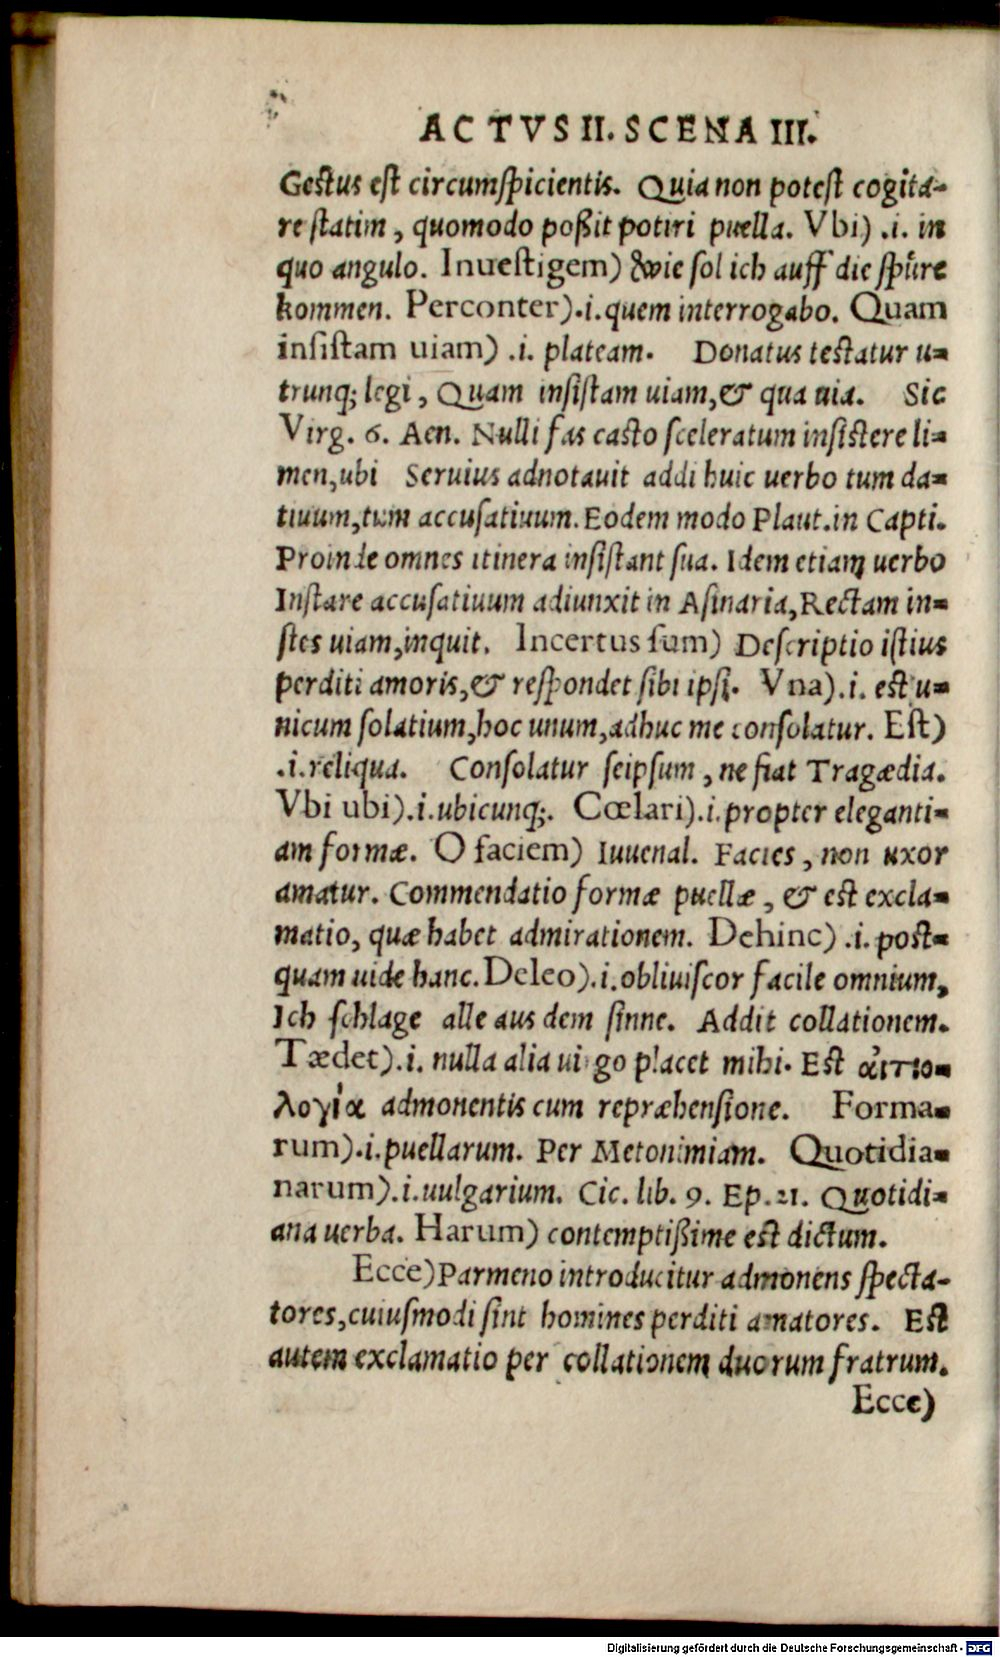 ACTVS II. SCENA III.
Gestus est circumspicientis. Quia non potest cogita-
re statim, quomodo poßit potiri puella. Vbi) .i. in
quo angulo. Inuestigem) Wie sol ich auff die spüre
kommen. Perconter).i.quem interrogabo. Quam
insistam uiam) .i. plateam. Donatus testatur u-
trunq; legi, Quam insistam uiam, & qua uia. Sic
Virg. 6. Aen. Nulli fas casto sceleratum insistere li-
men, ubi Seruius adnotauit addi huic uerbo tum da-
tiuum, tum accusatiuum. Eodem modo Plaut. in Capti.
Proinde omnes itinera insistant sua. Idem etiam uerbo
Instare accusatiuum adiunxit in Asinaria, Rectam in-
stes uiam, inquit. Incertus sum) Descriptio istius
perditi amoris, & respondet sibi ipsi. Vna).i. est u-
nicum solatium, hoc unum, adhuc me consolatur. Est)
.i.reliqua. Consolatur seipsum, ne fiat Tragædia.
Vbi ubi).i.ubicunq;. Cœlari).i.propter eleganti-
am formæ. O faciem) Iuuenal. Facies, non uxor
amatur. Commendatio formæ puellæ, & est excla-
matio, quæ habet admirationem. Dehinc) .i. post-
quam uide hanc. Deleo).i.obliuiscor facile omnium,
Ich schlage alle aus dem sinne. Addit collationem.
Tædet).i. nulla alia uirgo placet mihi. Est αἰτιο-
λογία admonentis cum repræhensione. Forma-
rum).i.puellarum. Per Metonimiam. Quotidia-
narum).i.uulgarium. Cic. lib. 9. Ep. 21. Quotidi-
ana uerba. Harum) contemptißime est dictum.
Ecce) Parmeno introducitur admonens specta-
tores, cuiusmodi sint homines perditi amatores. Est
autem exclamatio per collationem duorum fratrum.
Ecce)
Digitalisierung gefördert durch die Deutsche Forschungsgemeinschaft - DFG